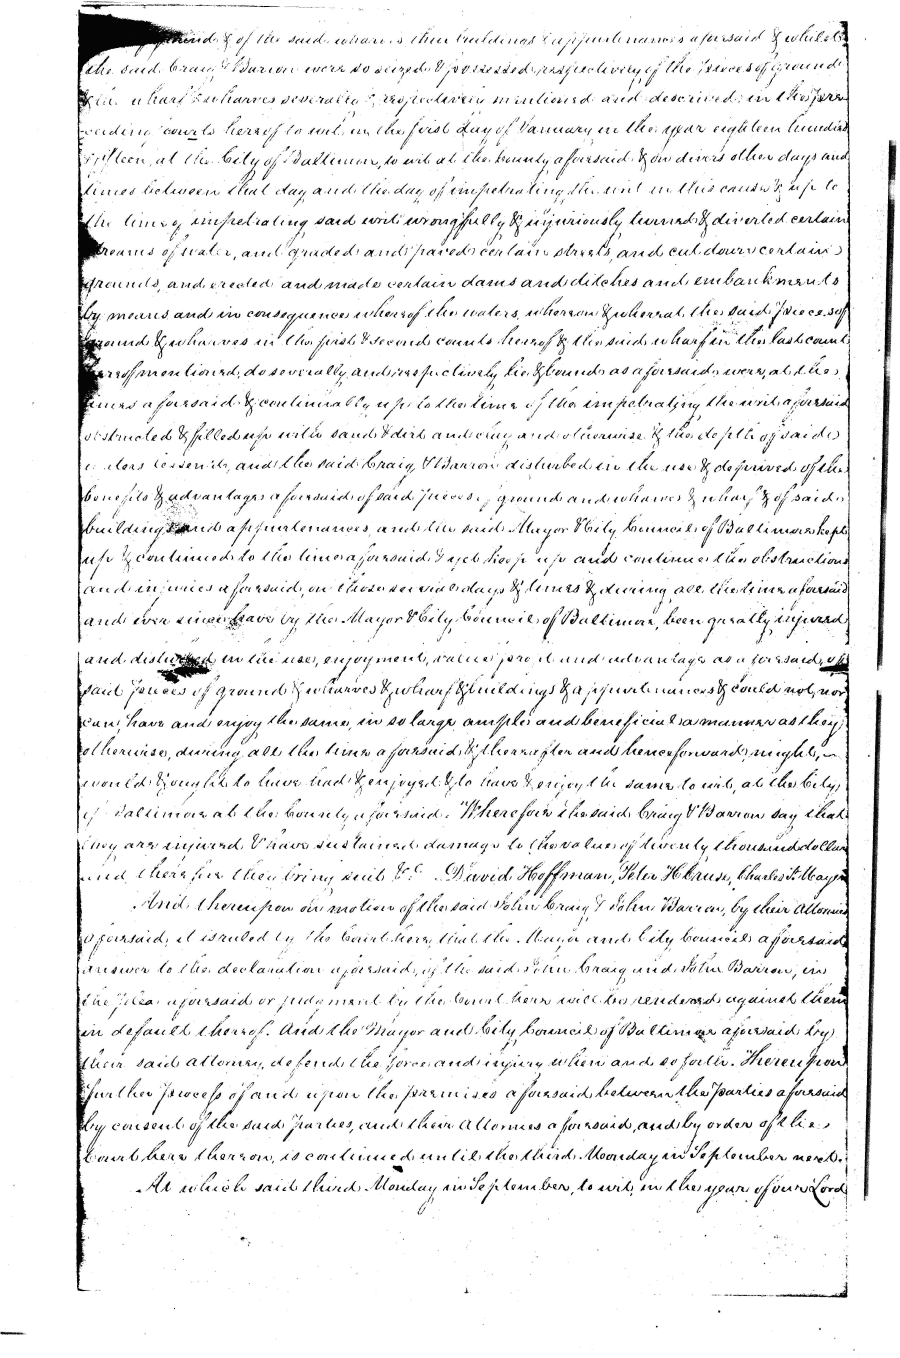 ground & of the said wharves their buildings & appurtenances aforesaid & whilst
the said Craig & Barron were so seized & possessed respectively of the pieces of ground
& the wharf & wharves severally & respectively mentioned and described in the pre
ceeding counts hereof to wit, on the first day of January in the year eighteen hundred
fifteen, at the City of Baltimore, to wit at the County aforesaid & on divers other days and
times between that day and the day of impetrating the writ in this cause & up to
the time of impetrating said writ wrongfully & injuriously turned & diverted certain
streams of water, and graded and paved certain streets, and cut down certain
grounds, and erected and made certain dams and ditches and embankments
by means and in consequence whereof the waters, whereon & whereat the said pieces of
ground & wharves in the first & second counts hereof & the said wharf in the last count
hereof mentioned, do severally and respectively lie & bound as aforesaid, were, at the
times aforesaid & continually up to the time of the impetrating the writ aforesaid
obstructed & filled up with sand & dirt and clay and otherwise & the depth of said
waters lessened, and the said Craig & Barron disturbed in the use & deprived of the
benefits & advantages aforesaid of said pieces of ground and wharves & wharf & of said
buildings and appurtenances, and the said Mayor & City Council of Baltimore kept
up & continued to the time aforesaid & yet keep up and continue the obstructions
and injuries aforesaid, on those several days & times & during all the time aforesaid
and ever since have by the Mayor & City Council of Baltimore, been greatly injured
and disturbed in the use, enjoyment, value profit and advantage as aforesaid, of
said pieces of ground & wharves & wharf & buildings & appurtenances & could not, nor
can, have and enjoy the same, in so large ample and beneficial a manner as they
otherwise, during all the time aforesaid & thereafter and henceforward, might,
would & ought to have had & enjoyed & to have & enjoy the same to wit, at the City
of Baltimore at the County aforesaid. Wherefore the said Craig & Barron say that
they are injured & have sustained damage to the value of twenty thousand dollars
and therefore they bring suit &c. David Hoffman, Peter H Cruse, Charles F. Mayer
And thereupon on motion of the said John Craig & John Barron, by their Attornies
aforesaid, it is ruled by the Court here, that the Mayor and City Council aforesaid
answer to the declaration aforesaid, of the said John Craig and John Barron, in
the plea aforesaid or judgment by the Court here will be rendered against them
in default thereof. And the Mayor and City Council of Baltimore aforesaid by
their said attorney, defend the force and injury when and so forth. Thereupon
further process of and upon the premises aforesaid between the parties aforesaid
by consent of the said parties, and their Attornies aforesaid, and by order of the
Court here thereon, is continued until the third Monday in September next.
At which said third Monday in September, to wit, in the year of our Lord